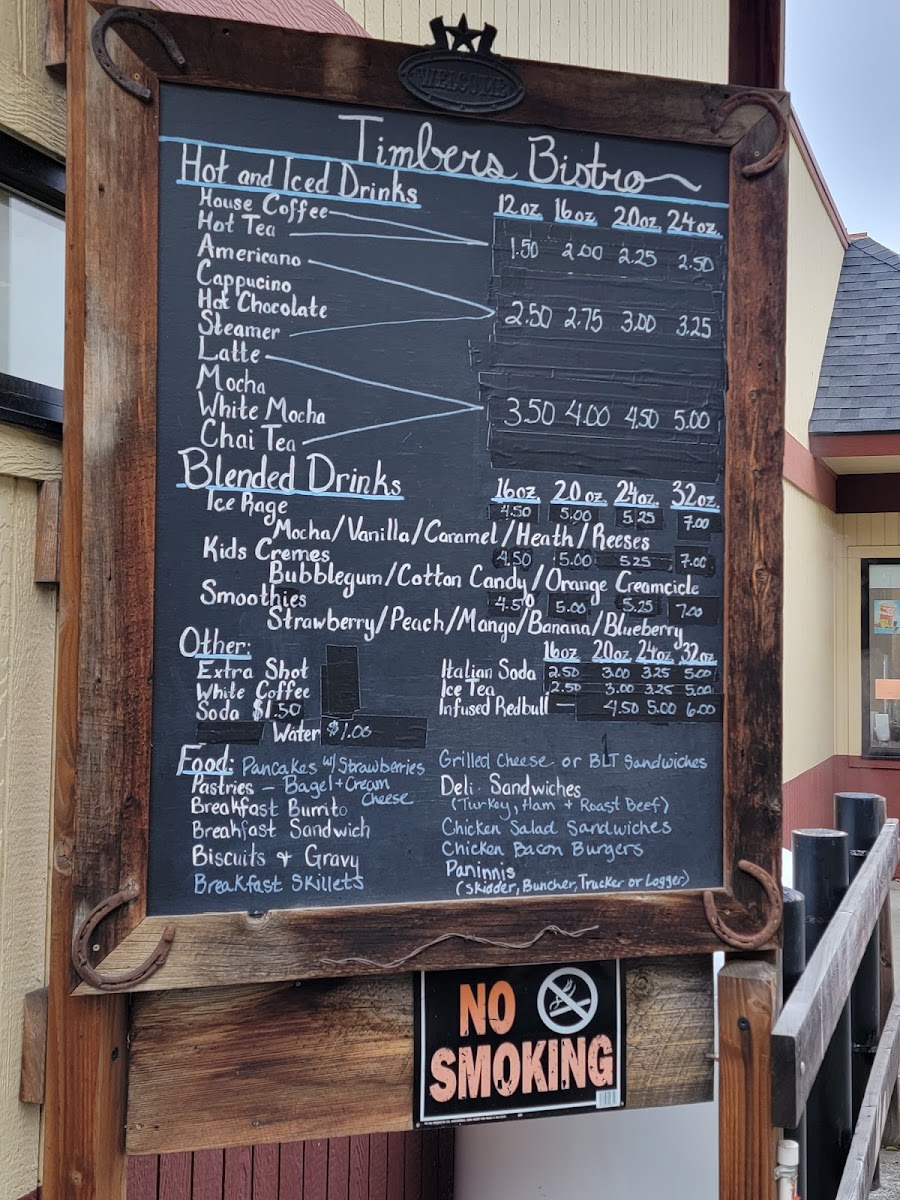 WELCOME
Timbers Bistro
Hot and Iced Drinks 12oz. 16oz. 20oz. 24oz.
House Coffee
Hot Tea 1.50 2.00 2.25 2.50
Americano
Cappucino
Hot Chocolate 2.50 2.75 3.00 3.25
Steamer
Latte
Mocha
White Mocha 3.50 4.00 4.50 5.00
Chai Tea
Blended Drinks 16oz. 20oz. 24oz. 32oz.
Ice Rage 4.50 5.00 5.25 7.00
Mocha/Vanilla/Caramel/Heath/Reeses
Kids Cremes 4.50 5.00 5.25 7.00
Bubblegum/Cotton Candy/Orange Creamcicle
Smoothies 4.50 5.00 5.25 7.00
Strawberry/Peach/Mango/Banana/Blueberry
Other: 16oz. 20oz. 24oz. 32oz.
Extra Shot Italian Soda 2.50 3.00 3.25 5.00
White Coffee Ice Tea 2.50 3.00 3.25 5.00
Soda $1.50 Infused Redbull — 4.50 5.00 6.00
Water $1.00
Food: Pancakes w/ Strawberries Grilled Cheese or BLT Sandwiches
Pastries - Bagel + Cream Cheese Deli Sandwiches
Breakfast Burrito (Turkey, Ham + Roast Beef)
Breakfast Sandwich Chicken Salad Sandwiches
Biscuits + Gravy Chicken Bacon Burgers
Breakfast Skillets Paninnis
(Skidder, Buncher, Trucker or Logger)
NO
SMOKING